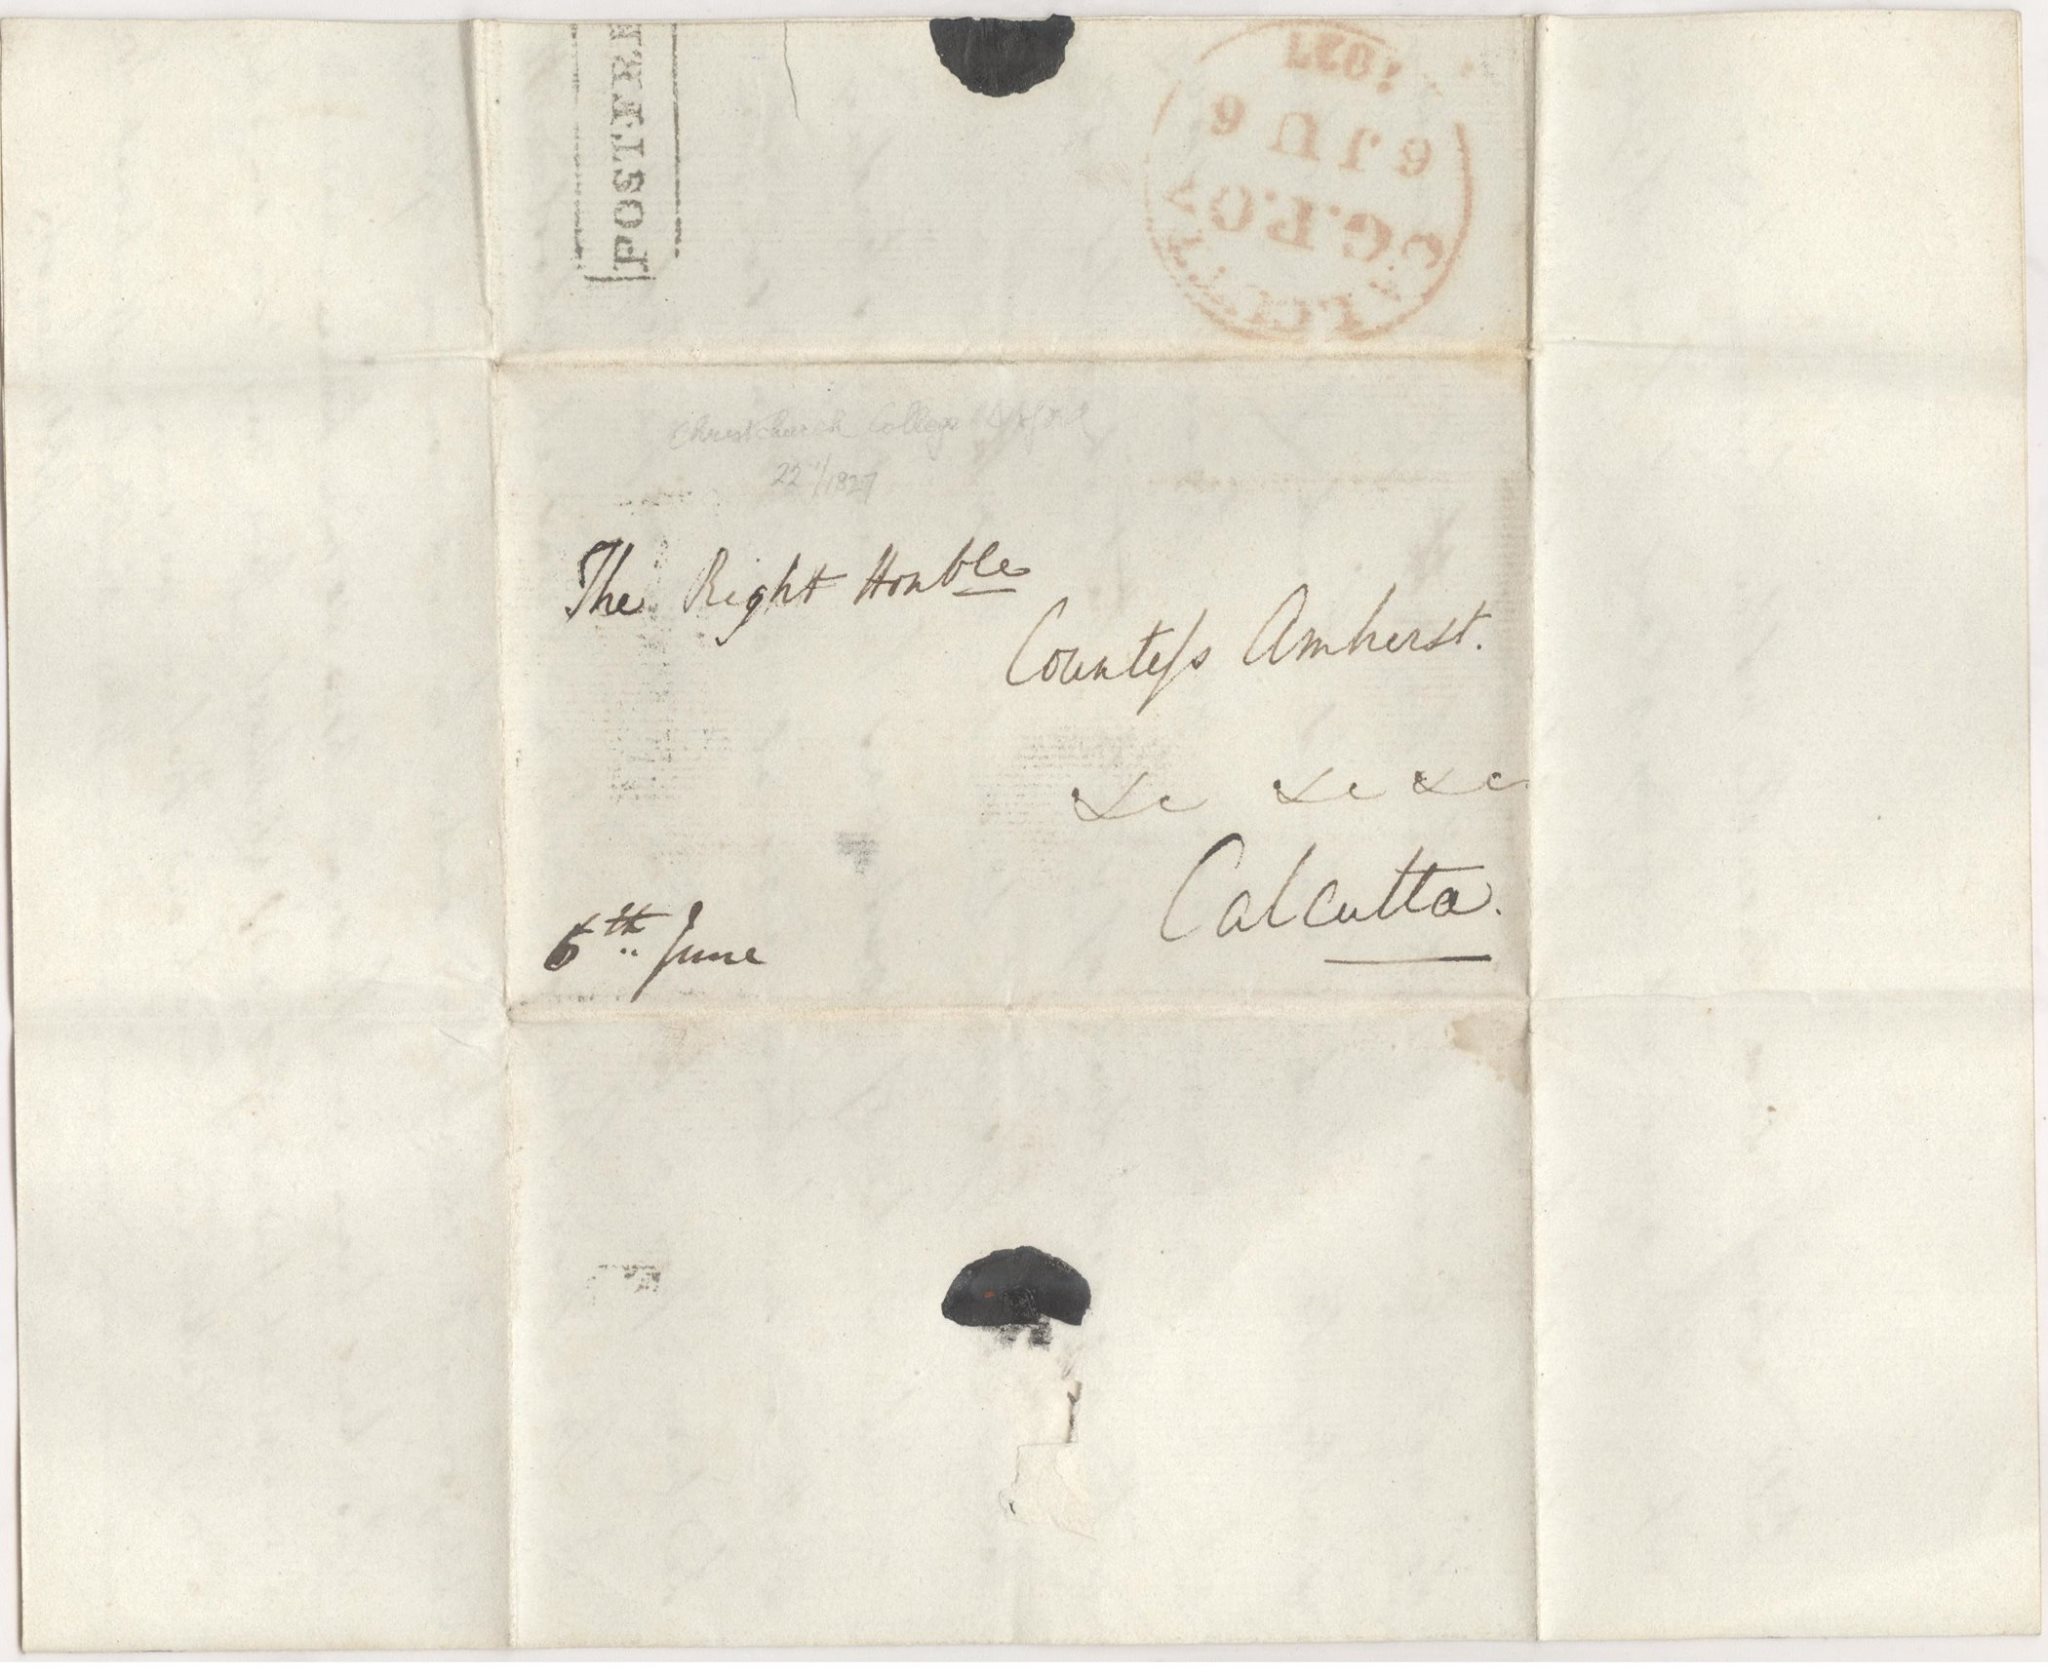 POST
CALCUTTA
G.P.O.
6 JU 6
1827
Christchurch College Oxford
22/1/1827
The Right Honble
Countess Amherst.
&c &c &c
Calcutta.
6th June